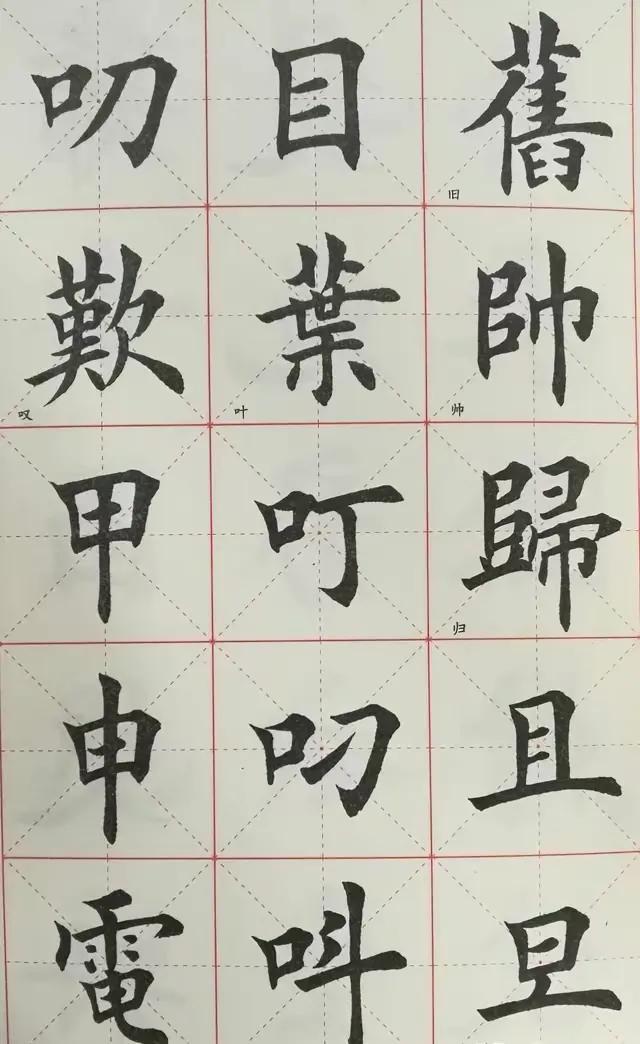 舊 旧 帥 帅 歸 归 且 旦
目 葉 叶 叮 叼 呌
叨 歎 叹 甲 申 電